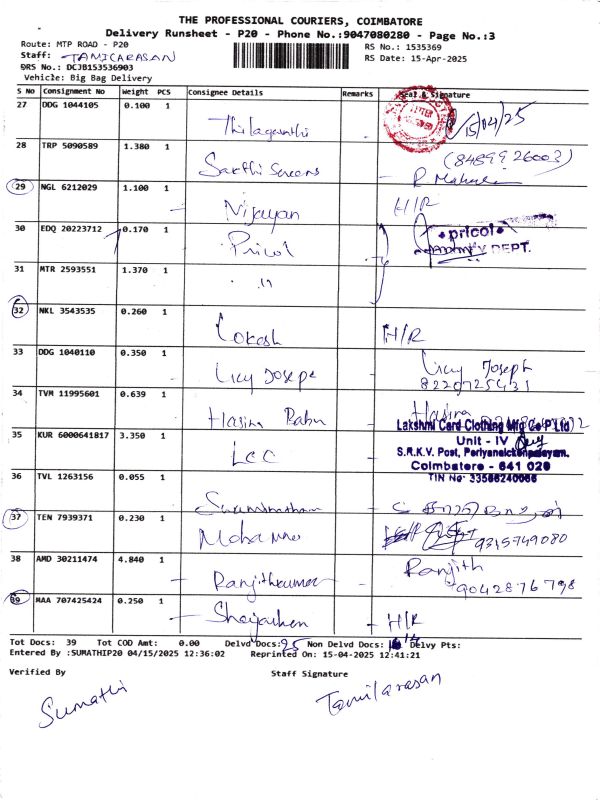 THE PROFESSIONAL COURIERS, COIMBATORE
Delivery Runsheet - P20 - Phone No.:9047080280 - Page No.:3
Route: MTP ROAD - P20
RS No.: 1535369
Staff: TAMILARASAN
RS Date: 15-Apr-2025
DRS No.: DCJB153536903
Vehicle: Big Bag Delivery
S No Consignment No Weight PCS Consignee Details Remarks Seal & Signature
27 DDG 1044105 0.100 1 15/04/25
28 TRP 5090589 1.380 1 Sakthi Screens (8489926003)
29 NGL 6212029 1.100 1 Vijayan H/R
30 EDQ 20223712 0.170 1 Pricol pricol
DEPT.
31 MTR 2593551 1.370 1 "
32 NKL 3543535 0.260 1 Lokesh H/R
33 DDG 1040110 0.350 1 Joseph
8220725431
34 TVM 11995601 0.639 1 Hasina Banu Hasina
35 KUR 6000641817 3.350 1 LCC Lakshmi Card Clothing Mfg Co P Ltd
Unit - IV
S.R.K.V. Post, Periyanaickenpalayam.
Coimbatore - 641 020
TIN No 33586240066
36 TVL 1263156 0.055 1
37 TEN 7939371 0.230 1 9345749080
38 AMD 30211474 4.840 1 Ranjithkumar Ranjith
9042876798
39 MAA 707425424 0.250 1 H/R
Tot Docs: 39 Tot COD Amt: 0.00 Delvd Docs: 25 Non Delvd Docs: 14 Delvy Pts:
Entered By :SUMATHIP20 04/15/2025 12:36:02 Reprinted On: 15-04-2025 12:41:21
Verified By Staff Signature
Sumathi Tamilarasan